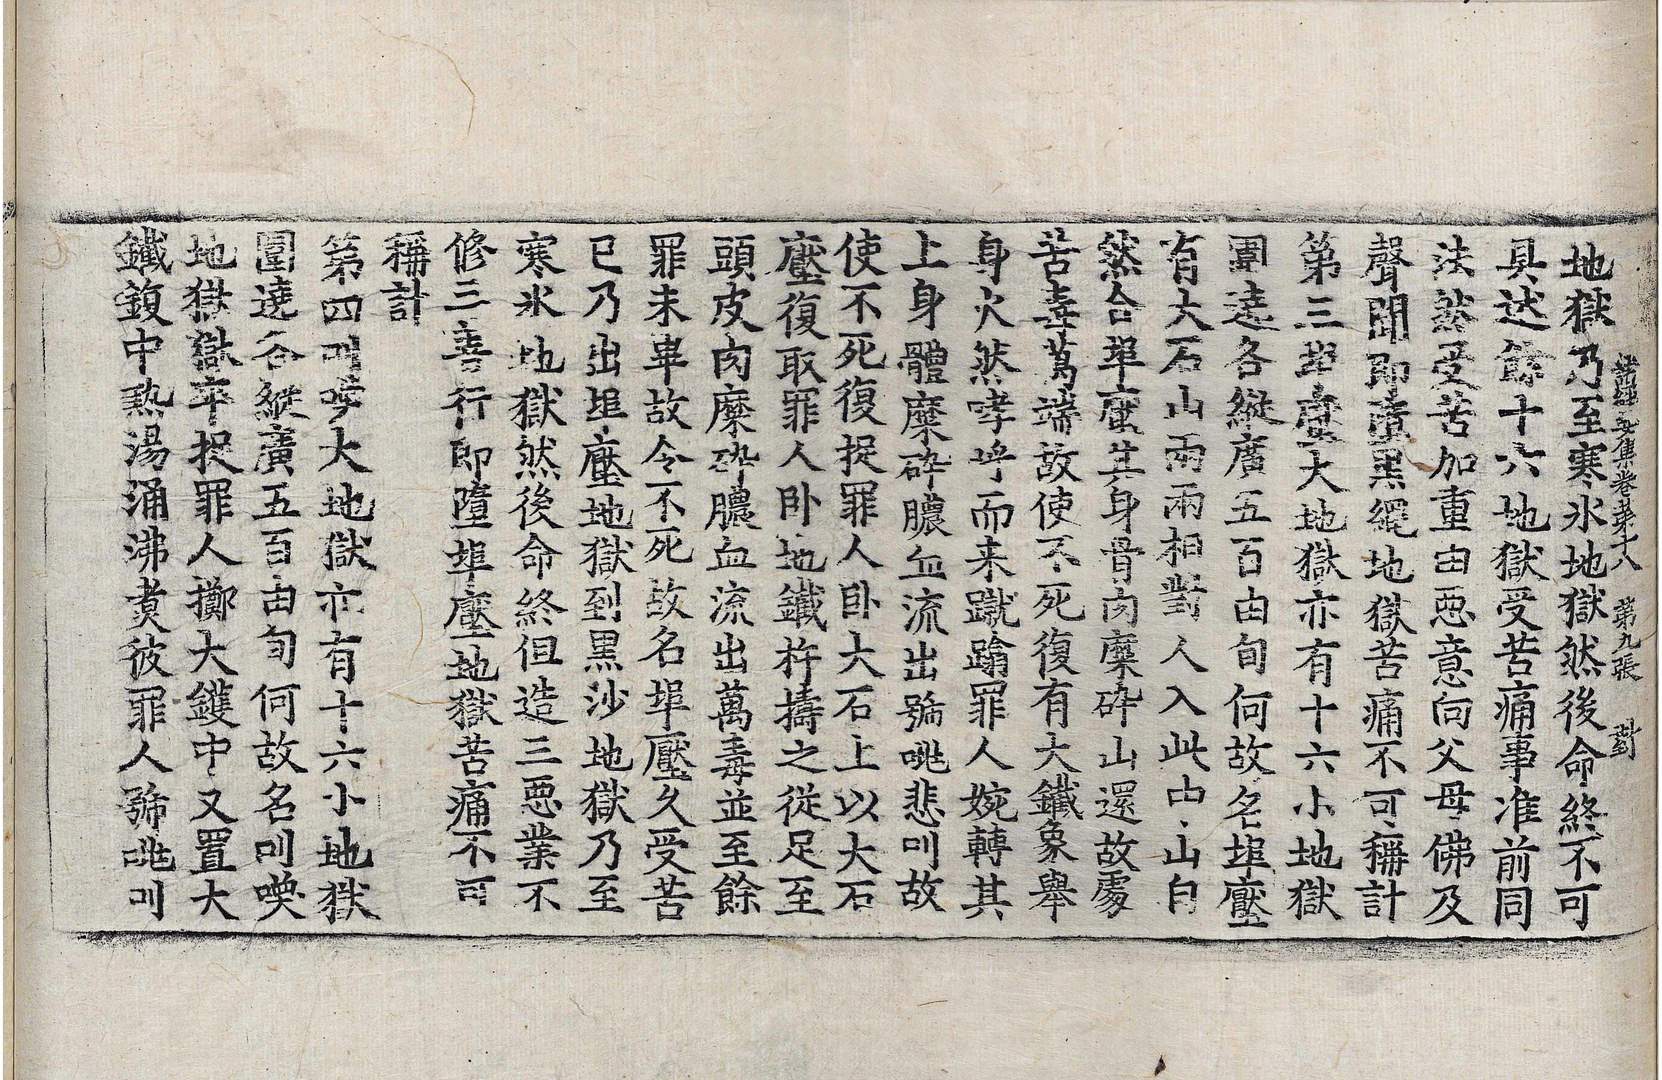 諸經要集卷第十八　第九張　對
地獄乃至寒氷地獄然後命終不可
具述餘十六地獄受苦痛事准前同
法然受苦加重由惡意向父母佛及
聲聞即墮黑繩地獄苦痛不可稱計
第三埠壓大地獄亦有十六小地獄
圍遶各縱廣五百由旬何故名埠壓
有大石山兩兩相對人入此中山自
然合埠壓其身骨肉糜碎山還故處
苦毒萬端故使不死復有大鐵象舉
身火然哮呼而来蹴蹹罪人婉轉其
上身體糜碎膿血流出號咷悲叫故
使不死復捉罪人卧大石上以大石
壓復取罪人卧地鐵杵擣之從足至
頭皮肉糜碎膿血流出萬毒並至餘
罪未畢故令不死故名埠壓久受苦
已乃出埠壓地獄到黑沙地獄乃至
寒氷地獄然後命終但造三惡業不
修三善行即墮埠壓地獄苦痛不可
稱計
第四叫喚大地獄亦有十六小地獄
圍遶各縱廣五百由旬何故名叫喚
地獄獄卒捉罪人擲大鑊中又置大
鐵鍑中熱湯涌沸煮彼罪人號咷叫